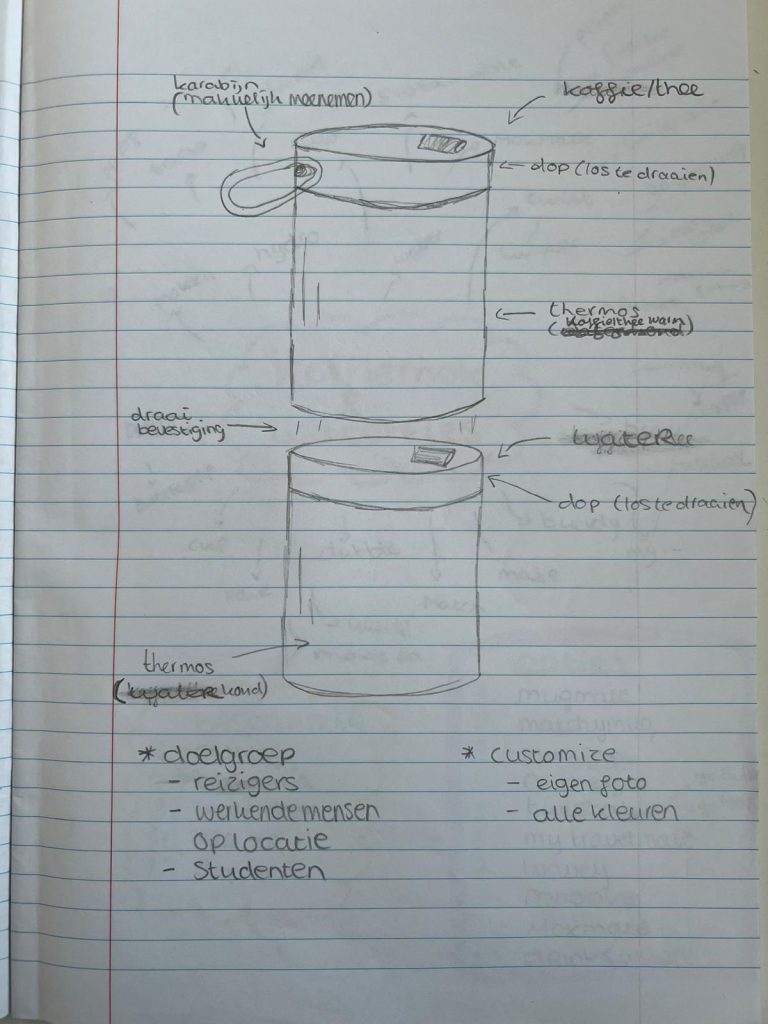 karabijn
(makkelijk meenemen)
koffie/thee
dop (los te draaien)
thermos
(koffie/thee warm)
draai
bevestiging
water
dop (los te draaien)
thermos
(water koud)
* doelgroep
- reizigers
- werkende mensen
op locatie
- Studenten
* customize
- eigen foto
- alle kleuren